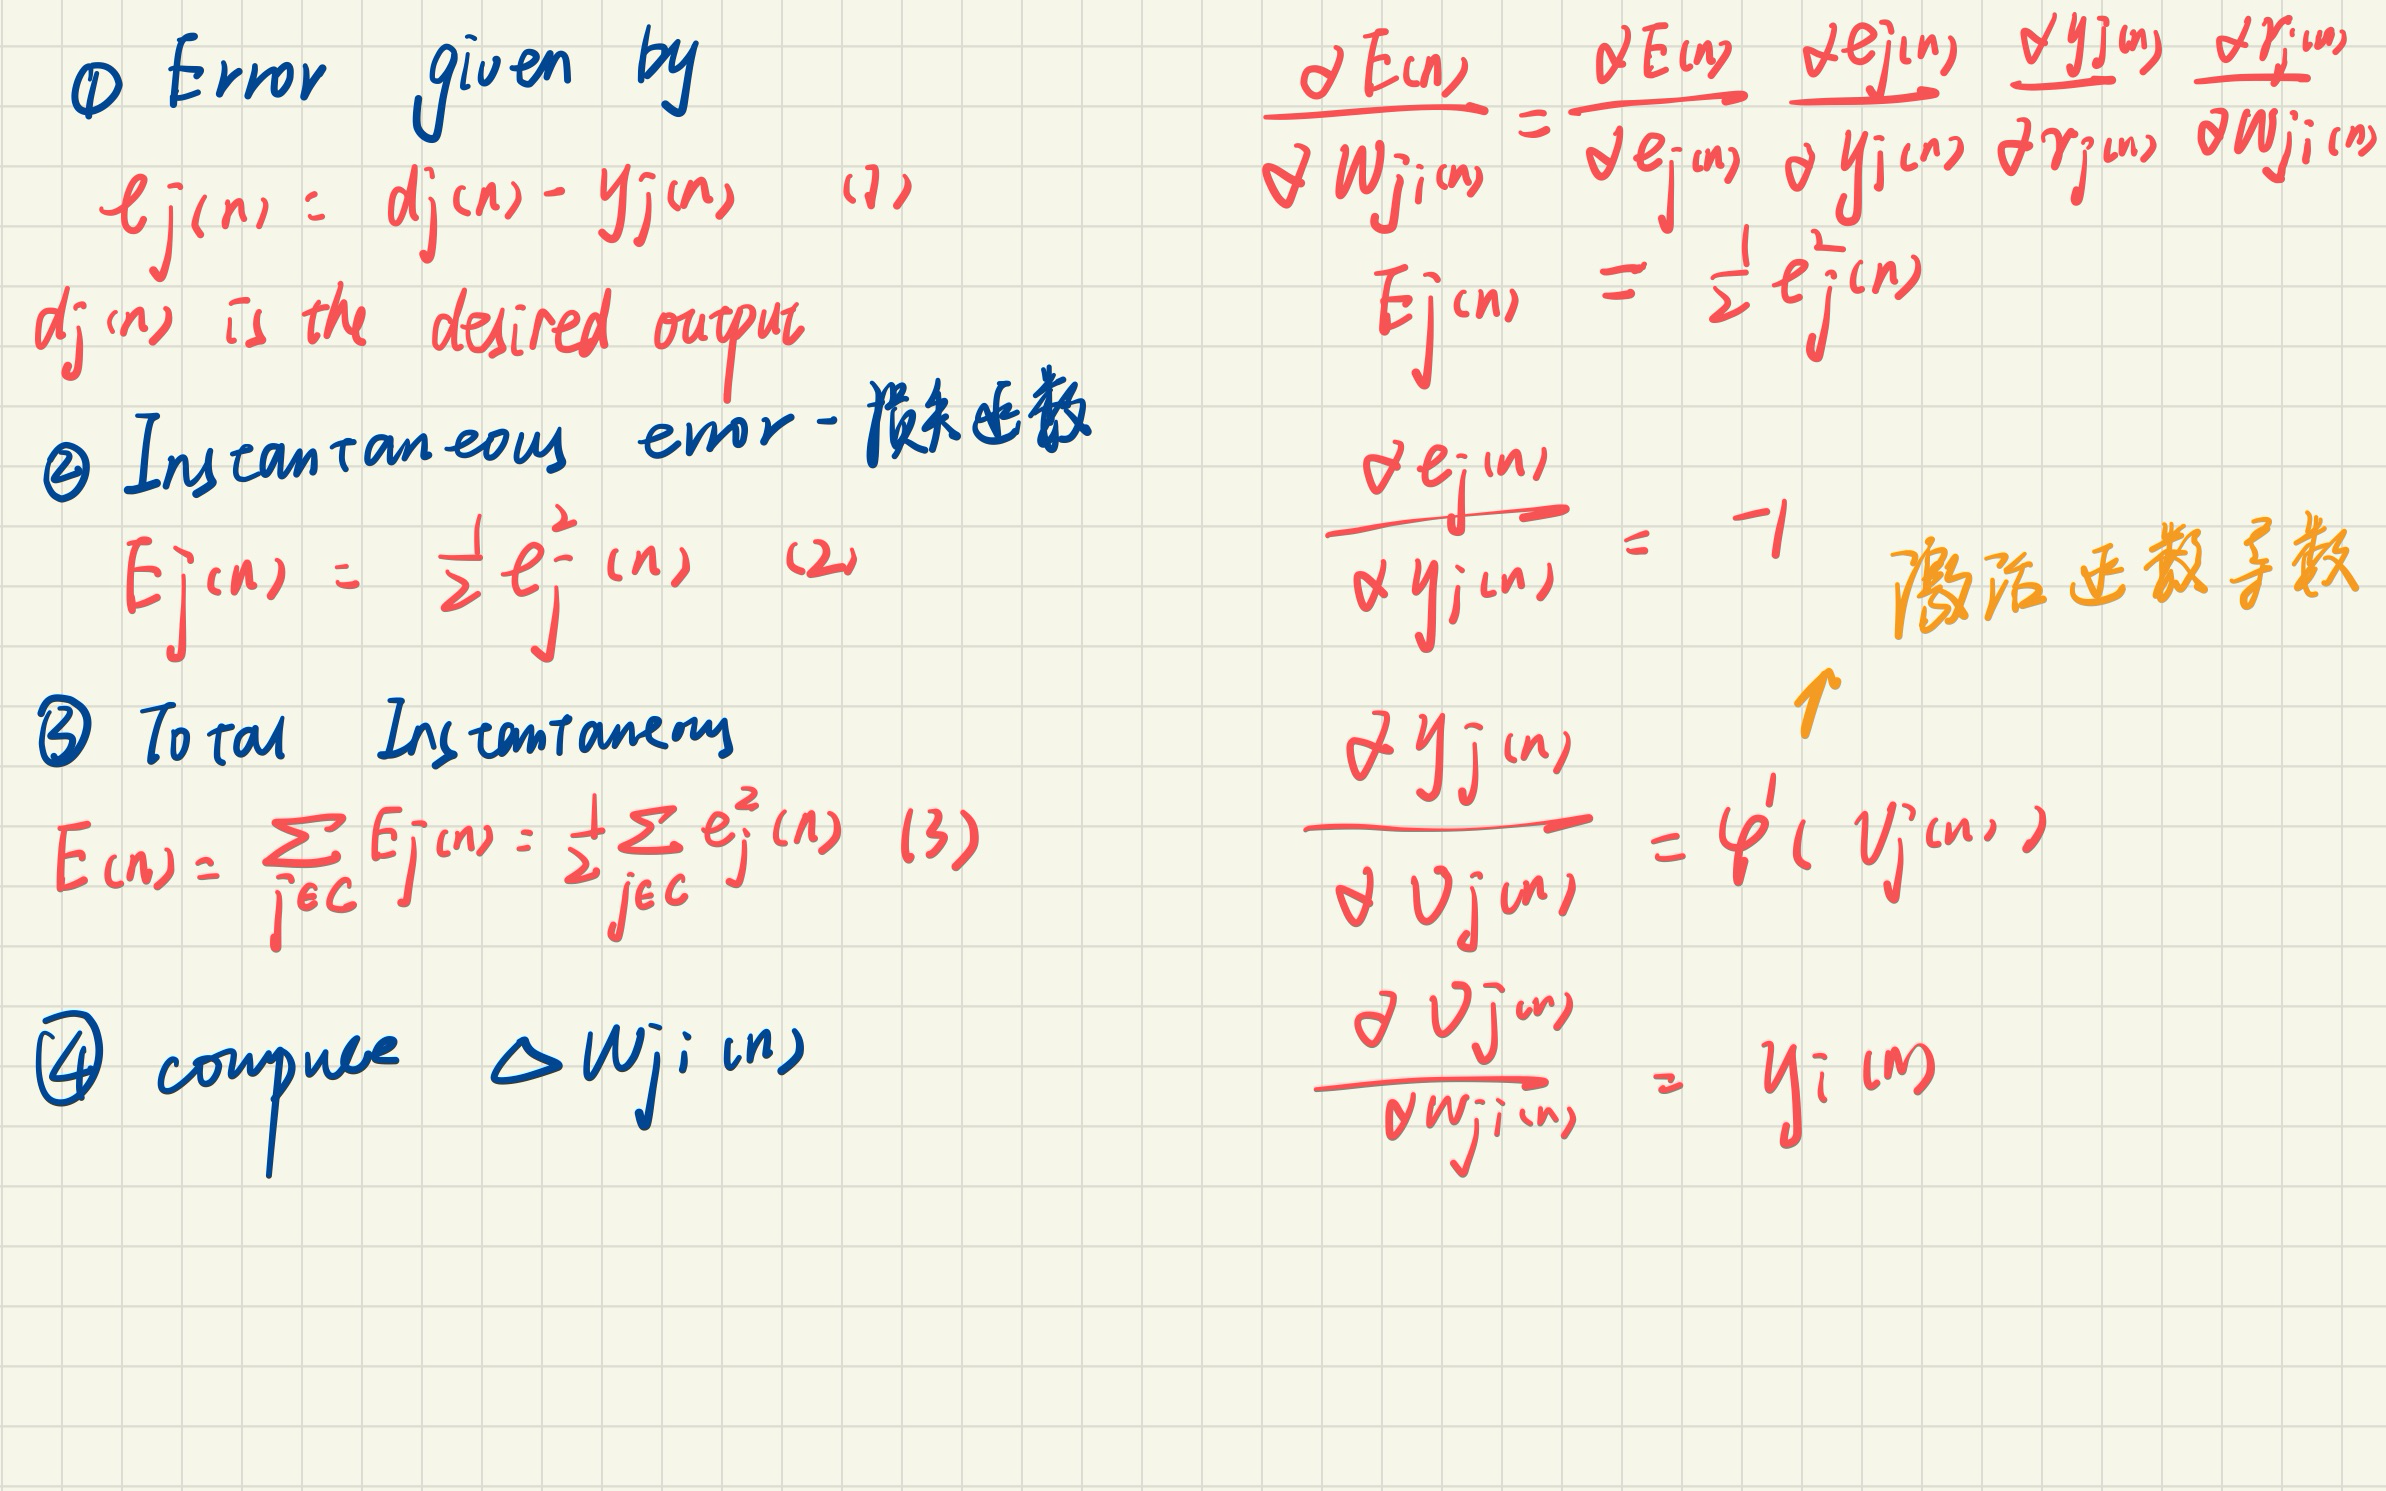 ① Error given by
ej(n) = dj(n) - yj(n) (1)
dj(n) is the desired output
② Instantaneous error - 损失函数
Ej(n) = 1/2 ej²(n) (2)
③ Total Instantaneous
E(n) = ∑j∈C Ej(n) = 1/2 ∑j∈C ej²(n) (3)
④ compute △Wji(n)
∂E(n)/∂Wji(n) = ∂E(n)/∂ej(n) ∂ej(n)/∂yj(n) ∂yj(n)/∂vj(n) ∂vj(n)/∂Wji(n)
Ej(n) = 1/2 ej²(n)
∂ej(n)/∂yj(n) = -1
激活函数导数
↑
∂yj(n)/∂vj(n) = φ'(vj(n))
∂vj(n)/∂wji(n) = yi(n)